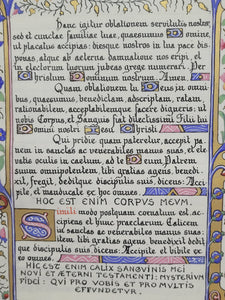 Hanc igitur oblationem servitutis nostræ
sed et cunctæ familiæ tuæ, quæsumus Domine,
ut placatus accipias: diesque nostros in tua pace dis-
ponas, atque ab æterna damnatione nos eripi, et
in electorum tuorum jubeas grege numerari. Per
Christum Dominum nostrum. Amen.
Quam oblationem tu Deus in omni-
bus, quæsumus, benedictam, adscriptam, ratam,
rationabilem, acceptabilemque facere digneris: ut
nobis Corpus, et Sanguis fiat dilectissimi Filii tui
Domini nostri Jesu Christi.
Qui pridie quam pateretur, accepit pa-
nem in sanctas ac venerabiles manus suas, et ele-
vatis oculis in cælum, ad te Deum Patrem
suum omnipotentem, tibi gratias agens, bened-
ixit, fregit, deditque discipulis suis, dicens: Acci-
pite, et manducate ex hoc omnes.
HOC EST ENIM CORPUS MEUM.
Simili modo postquam cœnatum est, ac-
cipiens et hunc præclarum Calicem
in sanctas ac venerabiles manus suas:
item tibi gratias agens, benedixit, dedit-
que discipulis suis, dicens: Accipite et bibite ex
eo omnes.
HIC EST ENIM CALIX SANGUINIS MEI,
NOVI ET ÆTERNI TESTAMENTI: MYSTERIUM
FIDEI: QUI PRO VOBIS ET PRO MULTIS
EFFUNDETUR